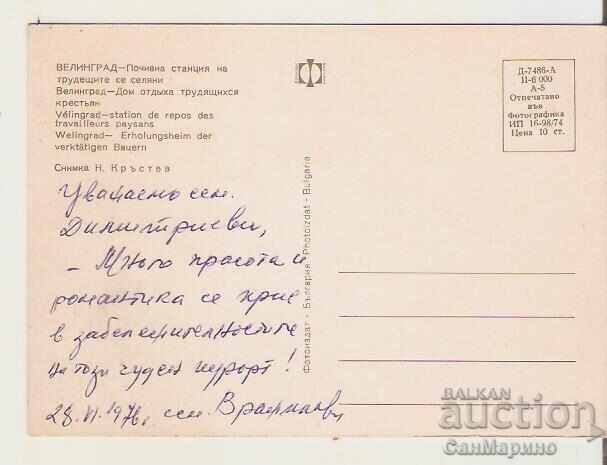 ВЕЛИНГРАД—Почивна станция на
трудещите се селяни
Велинград—Дом отдыха трудящихся
крестьян
Vélingrad—station de repos des
travailleurs paysans
Welingrad— Erholungsheim der
verktätigen Bauern
Снимка Н. Кръстев
Уважаемо сем.
Димитриеви,
– Много красота и
романтика се крие
в забележителностите
на този чуден курорт!
28.VI.1976, сем.
Фотоиздат - България - Photoizdat - Bulgaria
Д-7486-А
II-6 000
А-5
Отпечатано
във
Фотографика
ИП 16-98/74
Цена 10 ст.
BALKAN
auction
СанМарино